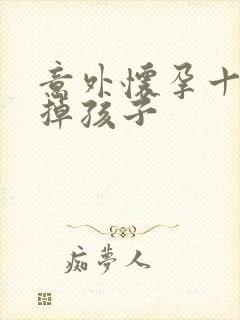 意外怀孕十
掉孩子
痴夢人